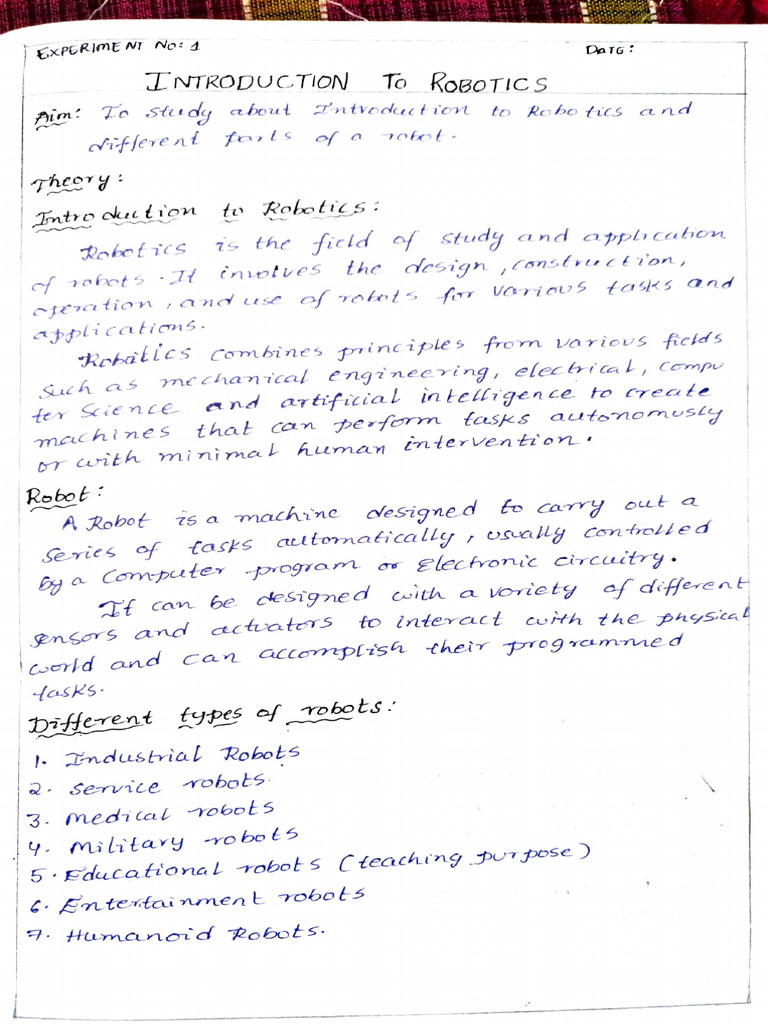 EXPERIMENT No: 1
DATE:
INTRODUCTION TO ROBOTICS
Aim: To study about Introduction to Robotics and
different parts of a robot.
Theory:
Introduction to Robotics:
Robotics is the field of study and application
of robots. It involves the design, construction,
operation, and use of robots for various tasks and
applications.
Robotics combines principles from various fields
such as mechanical engineering, electrical, compu
ter Science and artificial intelligence to create
machines that can perform tasks autonomusly
or with minimal human intervention.
Robot:
A Robot is a machine designed to carry out a
series of tasks automatically, usually controlled
by a Computer program or Electronic circuitry.
It can be designed with a variety of different
sensors and actuators to interact with the physical
world and can accomplish their programmed
tasks.
Different types of robots:
1. Industrial Robots
2. Service robots.
3. Medical robots
4. Military robots
5. Educational robots (teaching purpose)
6. Entertainment robots
7. Humanoid Robots.